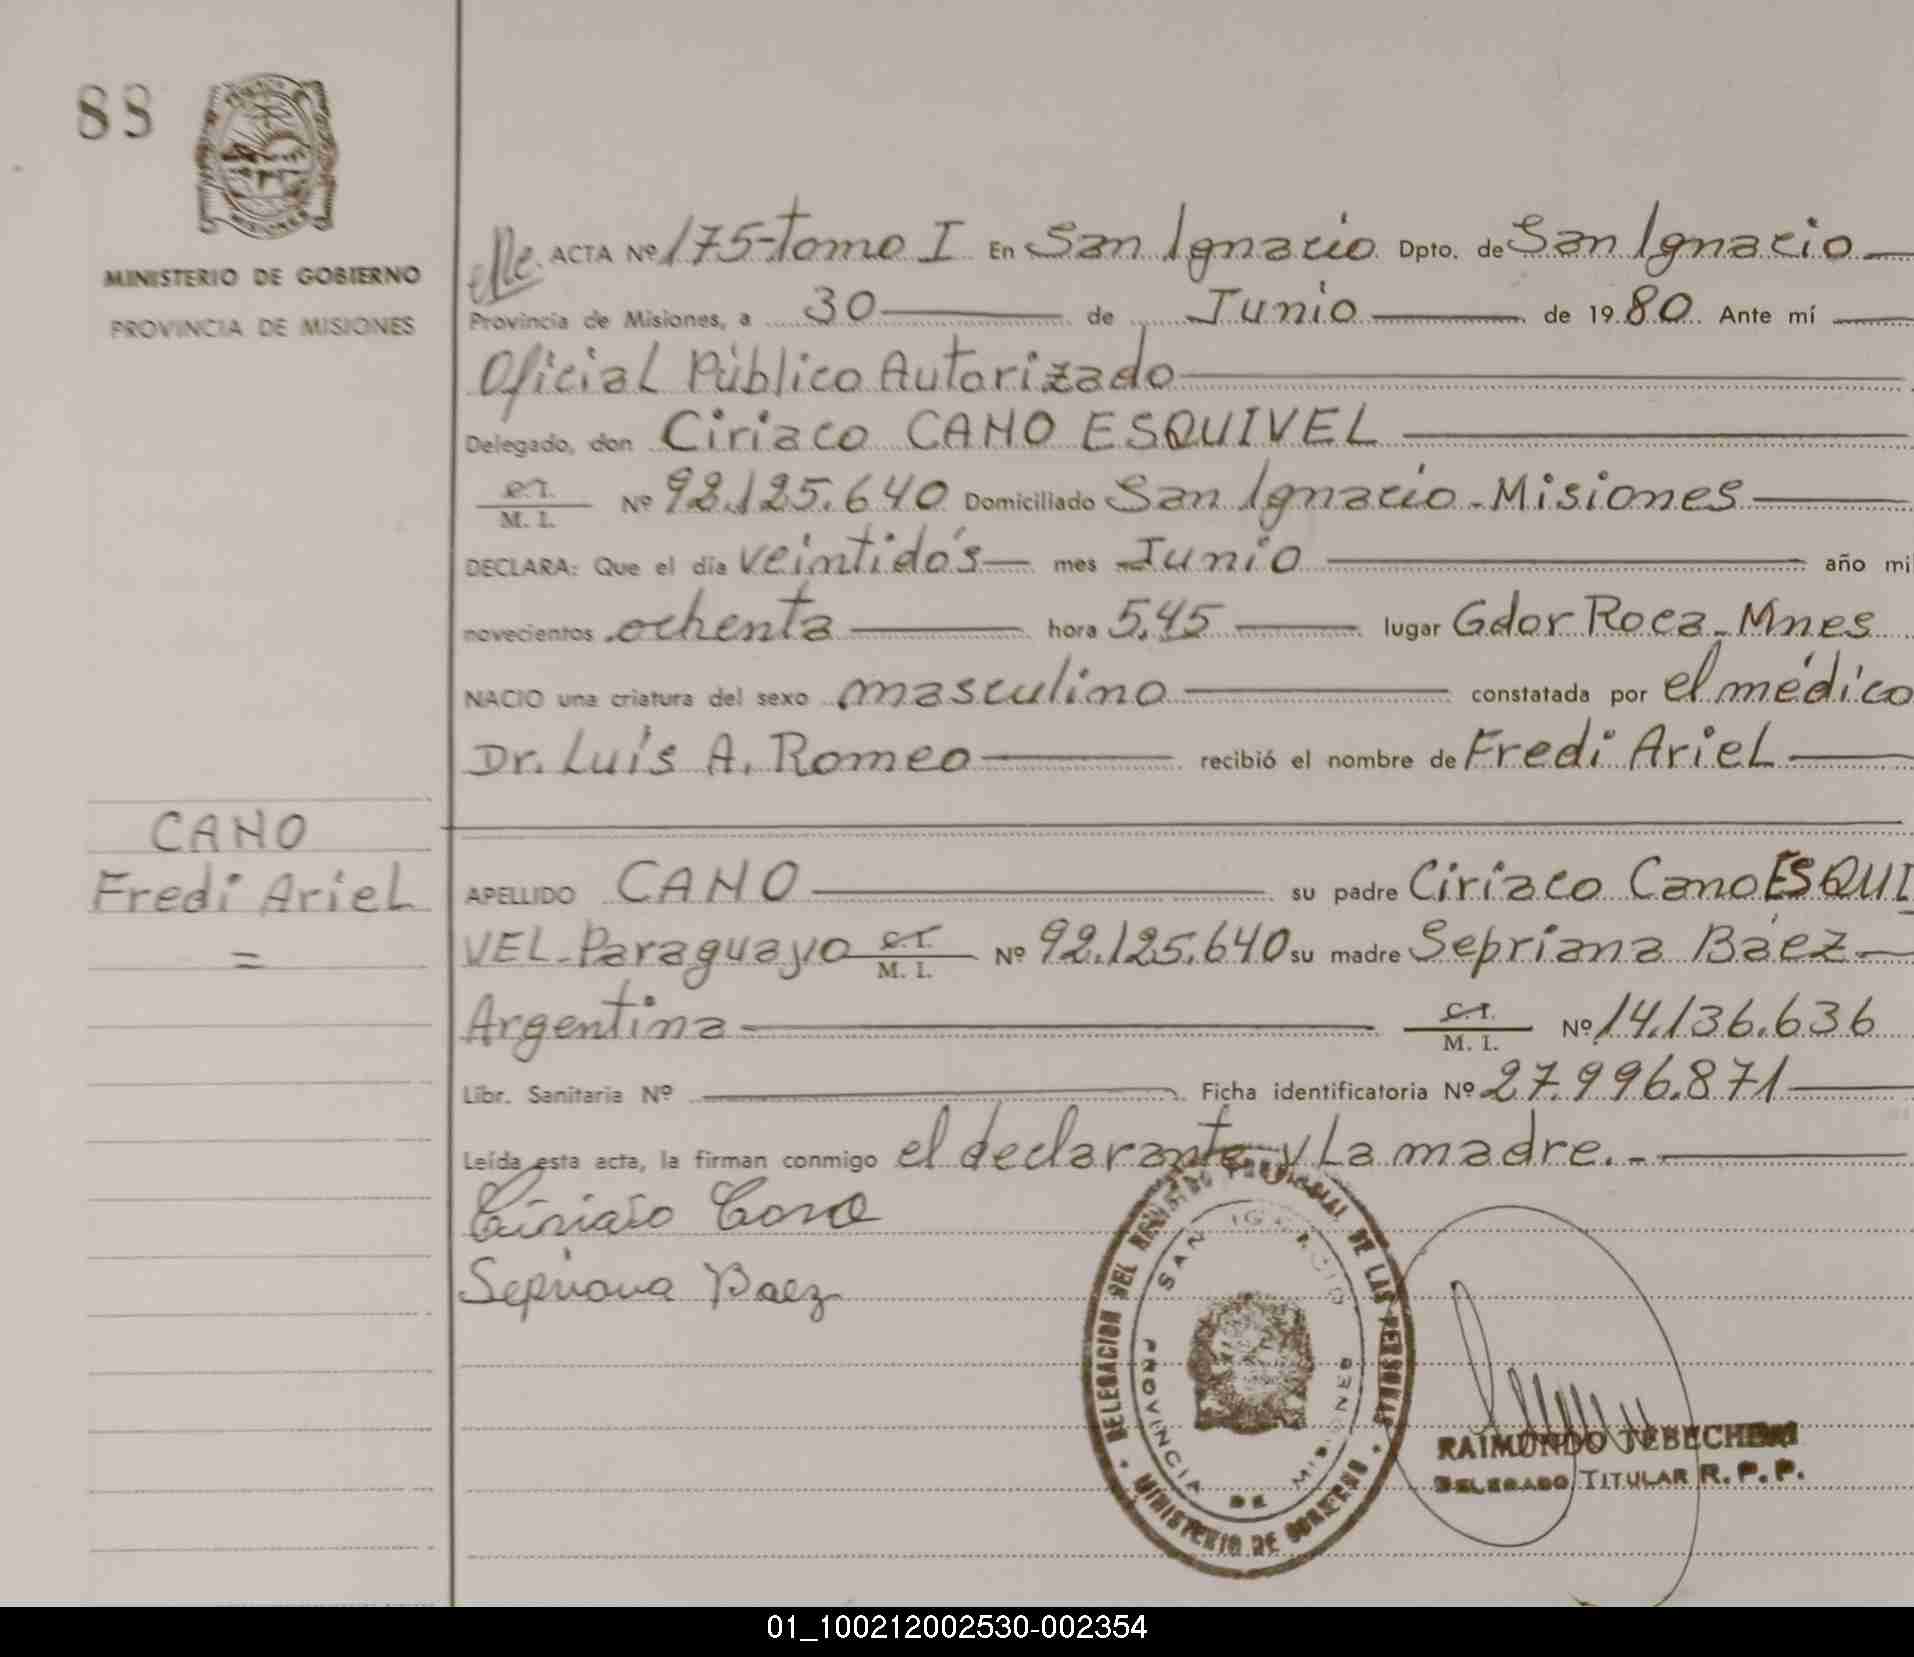 88
MINISTERIO DE GOBIERNO
PROVINCIA DE MISIONES
ACTA Nº 175-tomo I En San Ignacio Dpto. de San Ignacio
Provincia de Misiones, a 30 de Junio de 1980. Ante mí
Oficial Público Autorizado
Delegado, don Ciriaco CANO ESQUIVEL
C.I. / M. I. Nº 92.125.640 Domiciliado San Ignacio - Misiones
DECLARA: Que el día veintidós mes Junio año mil
novecientos ochenta hora 5,45 lugar Gdor Roca - Mnes
NACIO una criatura del sexo masculino constatada por el médico
Dr. Luís A. Romeo recibió el nombre de Fredi Ariel
CANO
Fredi Ariel
=
APELLIDO CANO su padre Ciriaco Cano ESQUI
VEL - Paraguayo C.I. / M. I. Nº 92.125.640 su madre Sepriana Báez
Argentina C.I. / M. I. Nº 14.136.636
Libr. Sanitaria Nº Ficha identificatoria Nº 27.996.871
Leída esta acta, la firman conmigo el declarante y La madre.-
Ciriaco Cano
Sepriana Baez
DELEGACION DEL REGISTRO PROVINCIAL DE LAS PERSONAS
SAN IGNACIO
PROVINCIA DE MISIONES
MINISTERIO DE GOBIERNO
RAIMUNDO
DELEGADO TITULAR R. P. P.
01_100212002530-002354